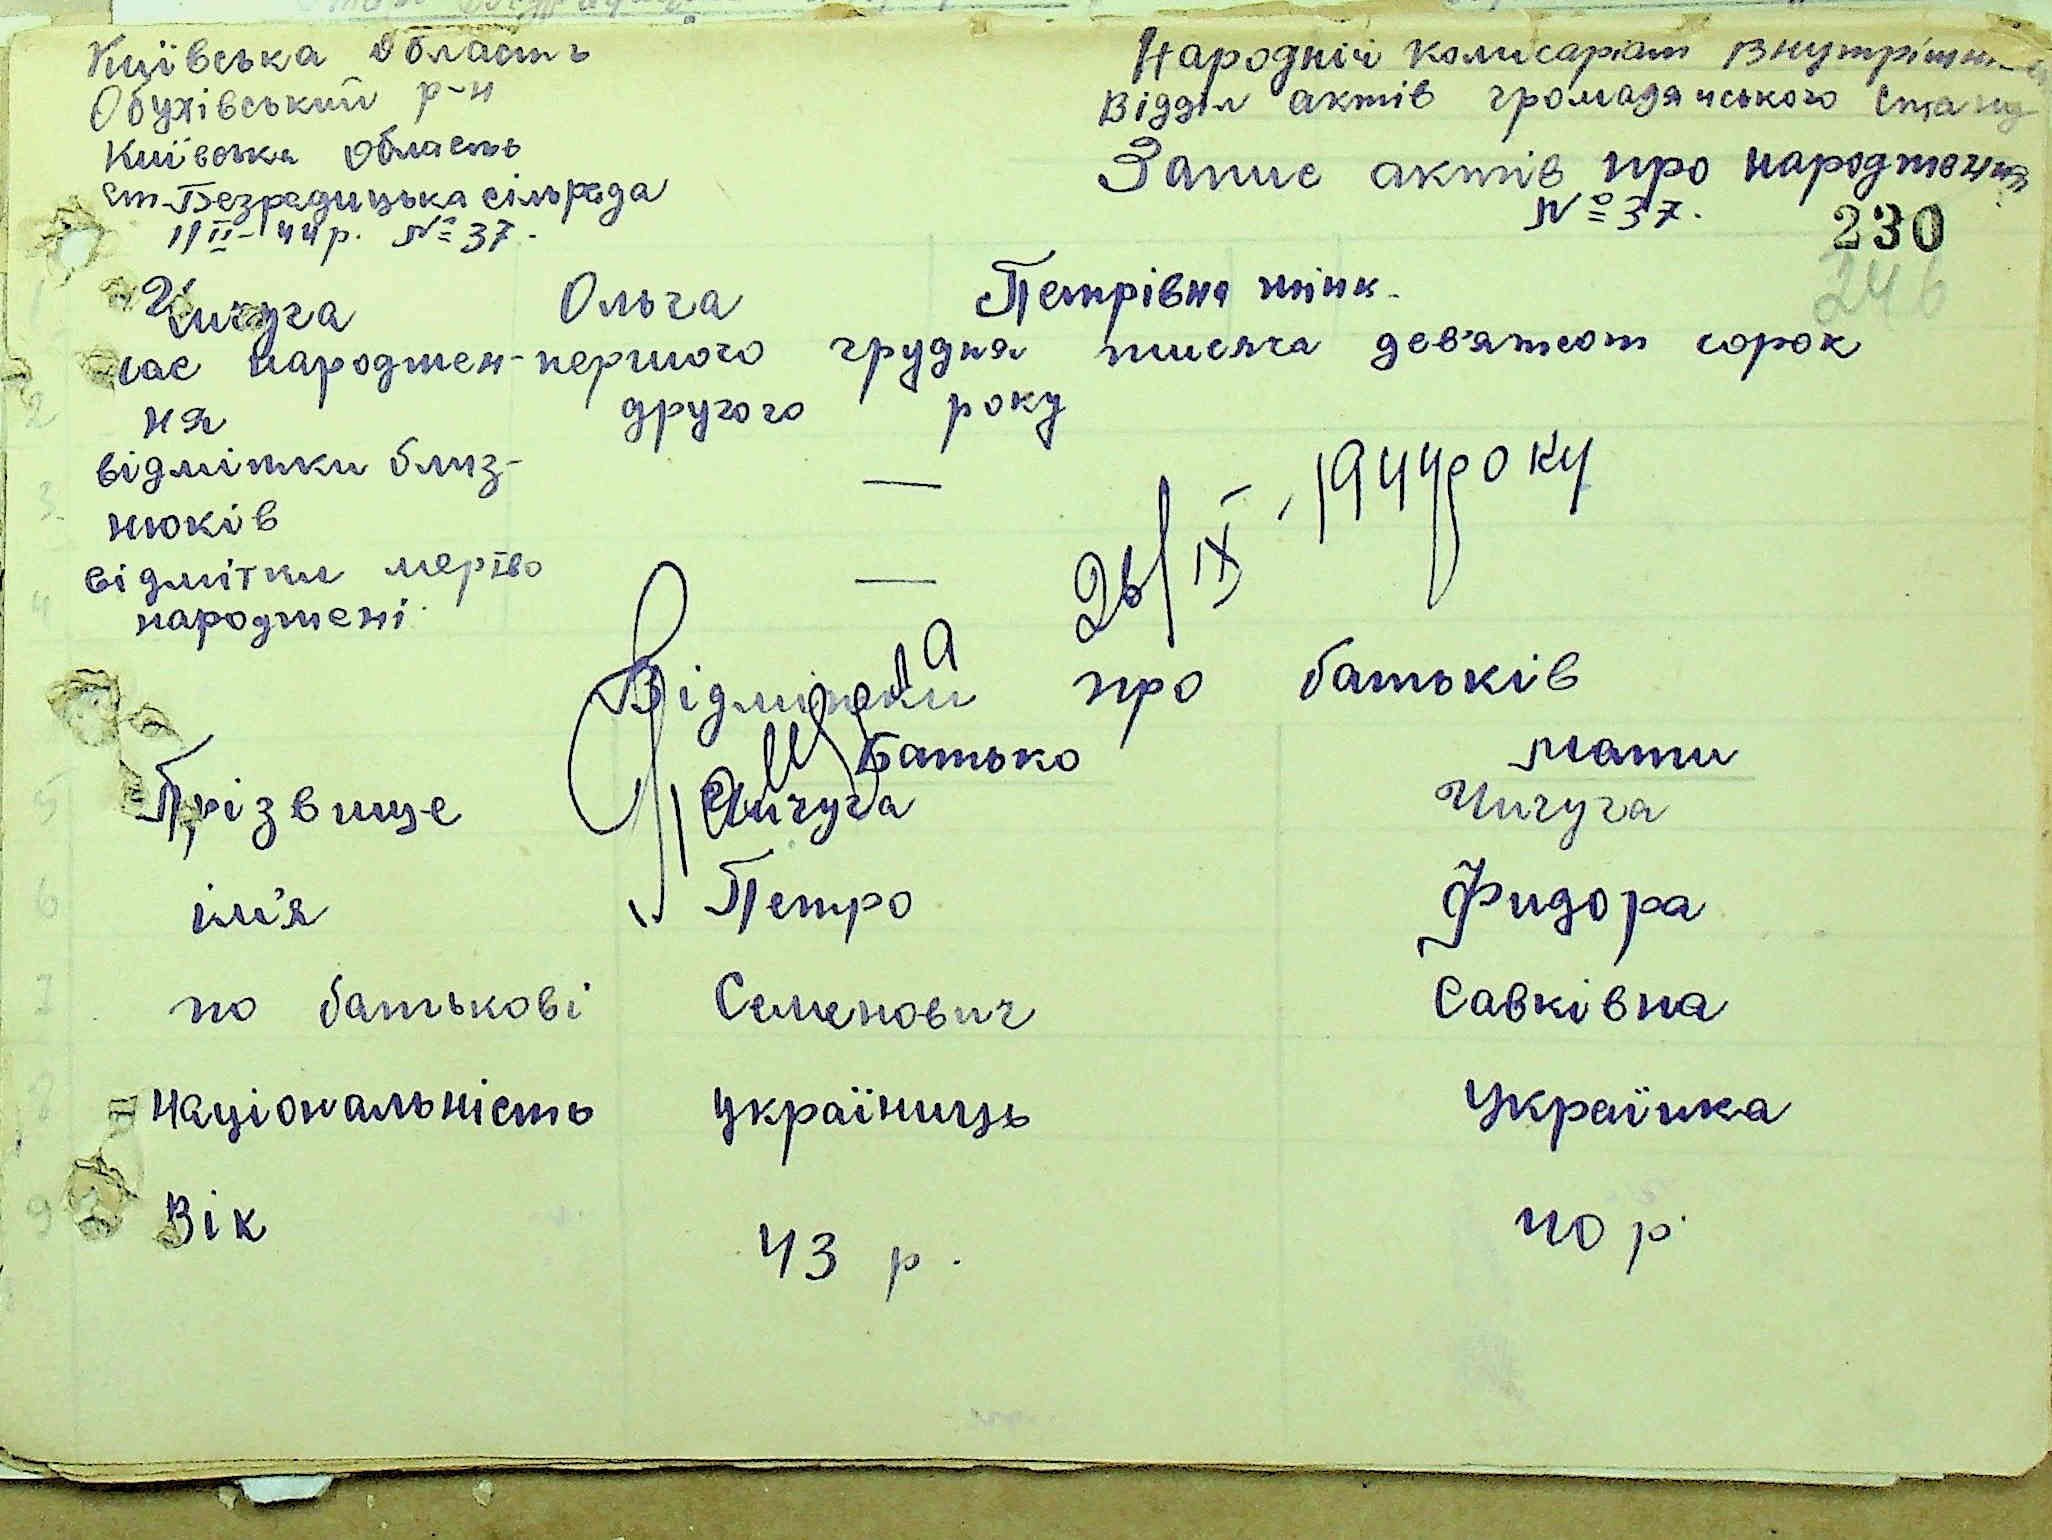 Київська область
Обухівський р-н
Київська область
Ст-Безрадицька сільрада
11 II-44р. № 37.
Народній Комисаріат Внутрішн
Відділ актів громадянського стану
Запис актів про народження
№ 37.
230
246
Чичуга Ольга Петрівна жінк.
час народжен- першого грудня тисяча дев'ятсот сорок
ня другого року
відмітки близ- —
нюків
26/IX 1944 року
відмітки мертво —
народжені
Відмітки про батьків
Батько мати
Прізвище Чичуга Чичуга
ім'я Петро Фидора
по батькові Семенович Савківна
Національність україниць Українка
Вік 43 р. 40 р.
1
2
3
4
5
6
7
8
9